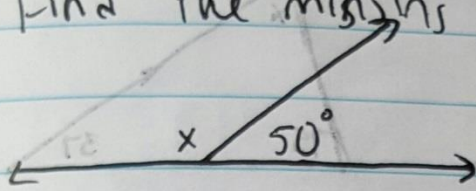 Find The missing
x 50°